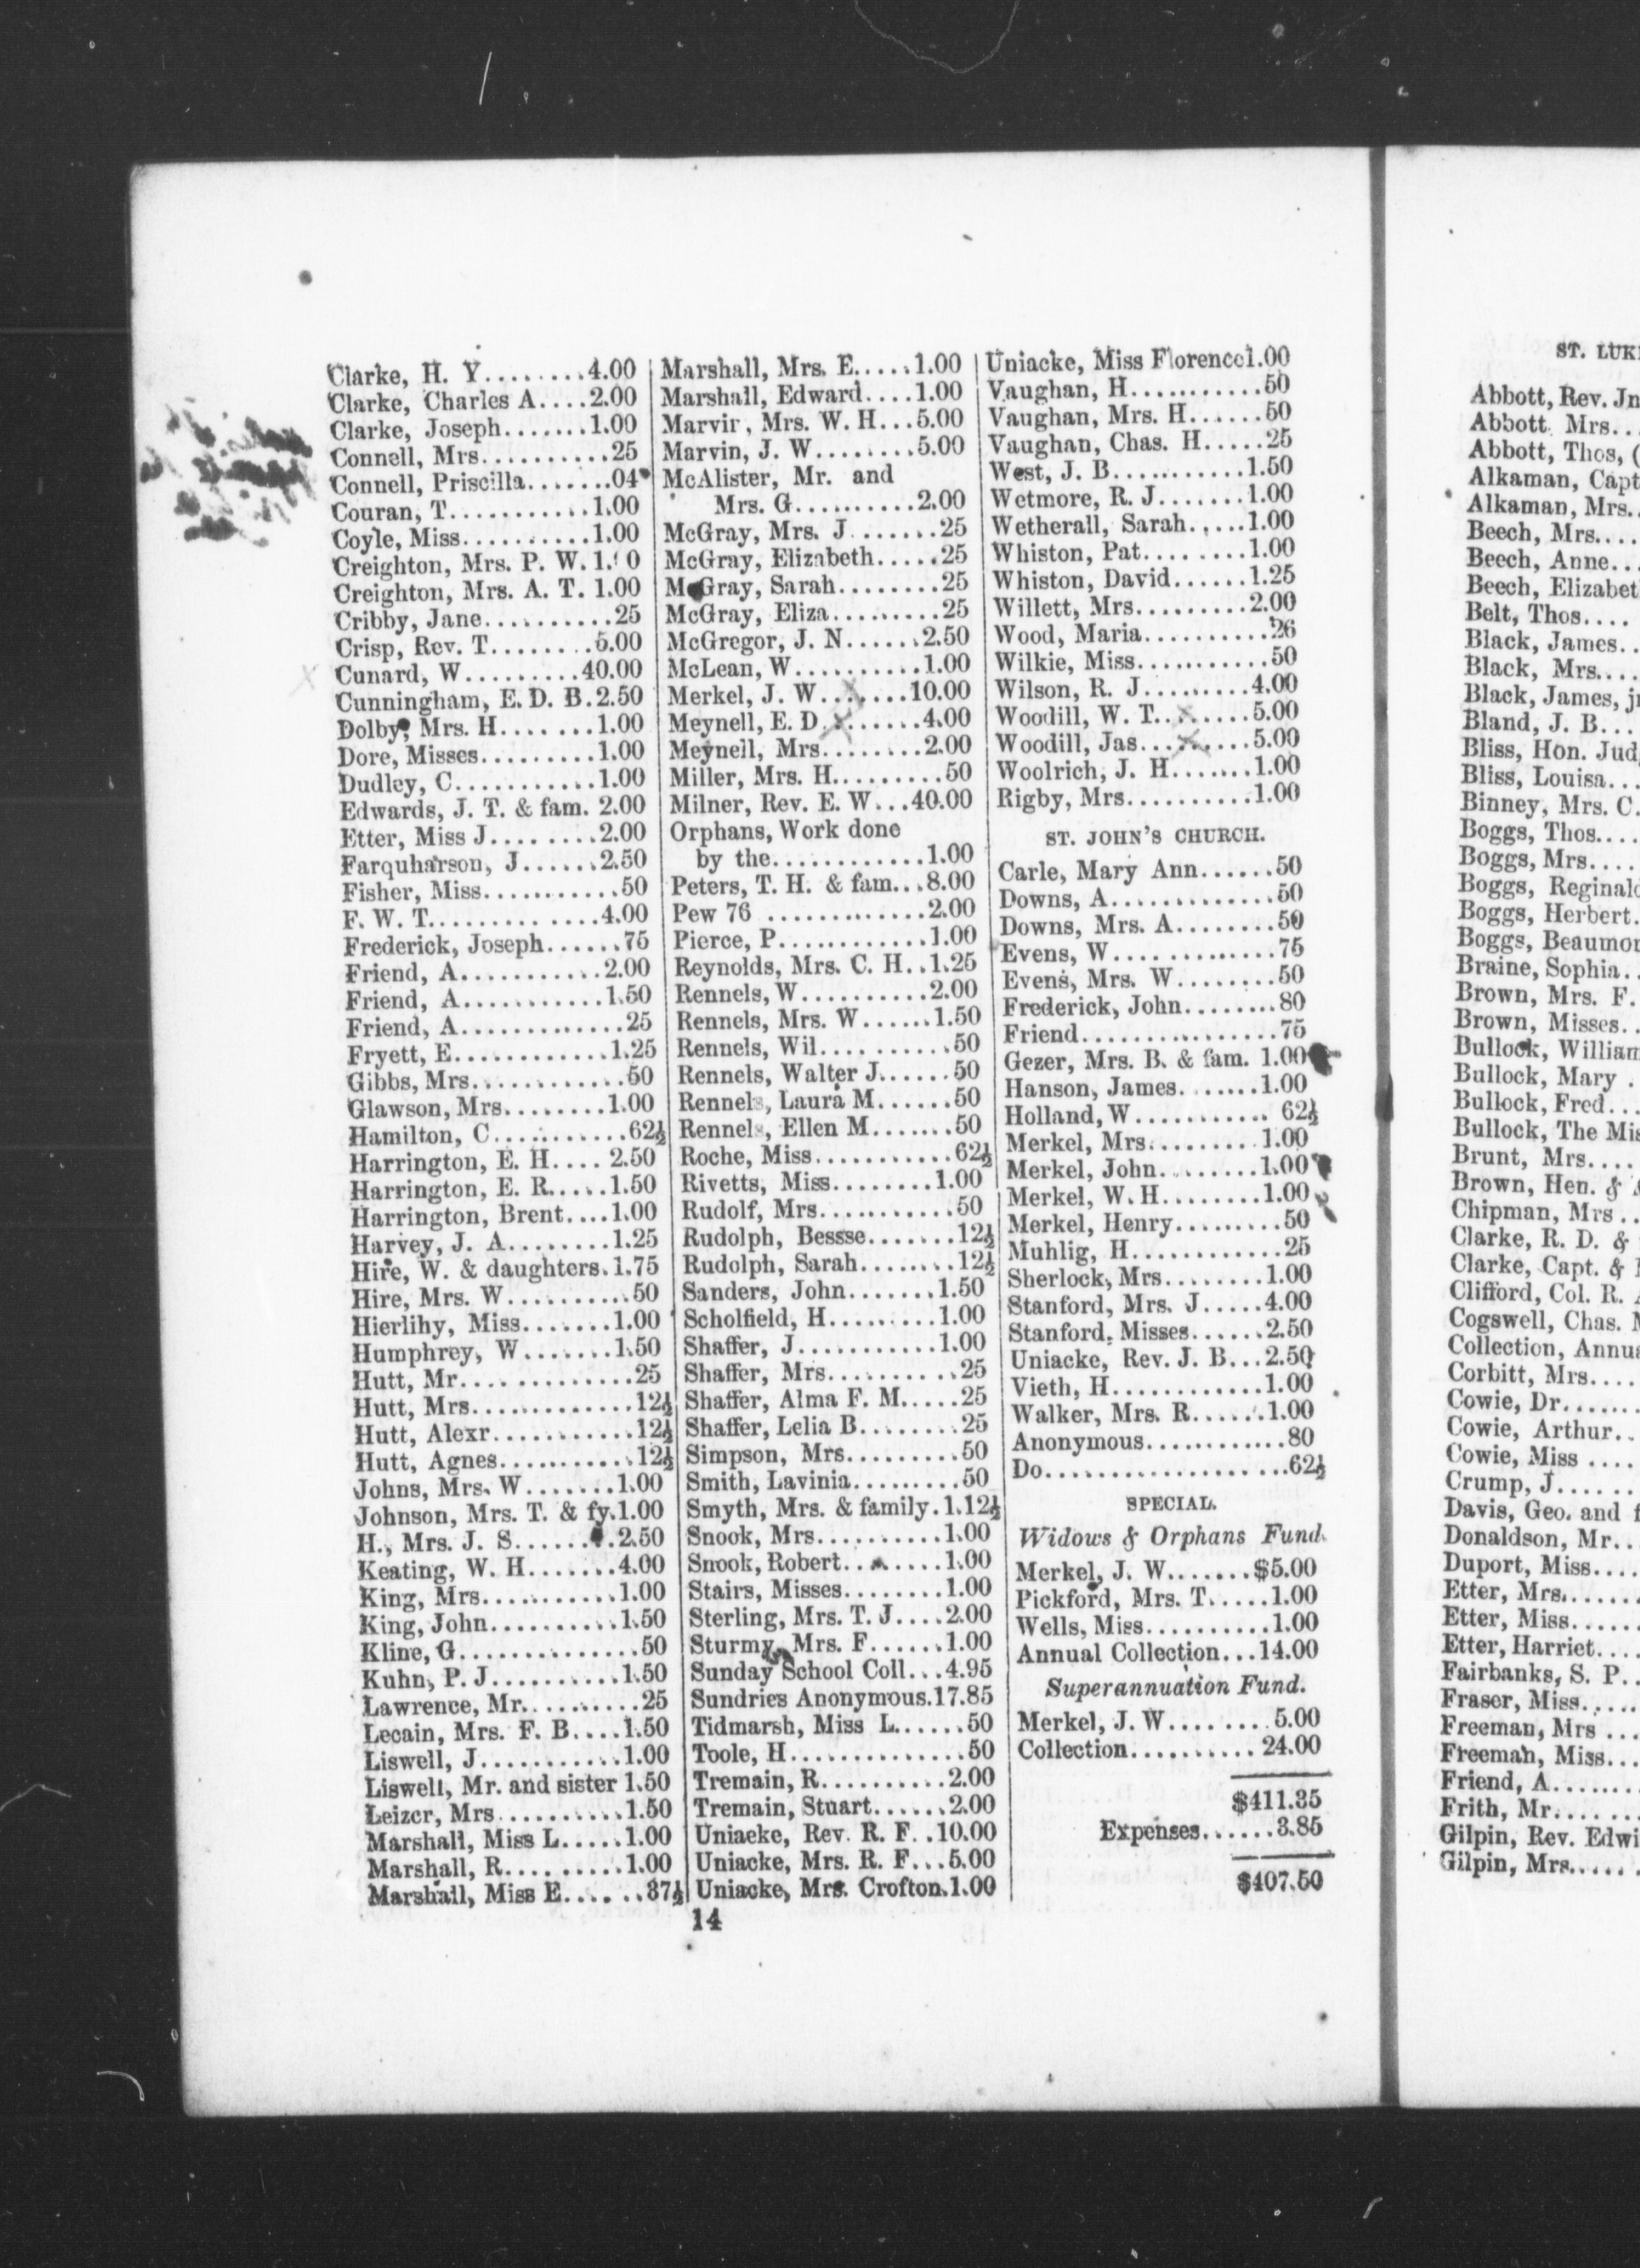 Clarke, H. Y........4.00
Clarke, Charles A....2.00
Clarke, Joseph.......1.00
Connell, Mrs..........25
Connell, Priscilla.......04
Couran, T...........1.00
Coyle, Miss..........1.00
Creighton, Mrs. P. W.
Creighton, Mrs. A. T. 1.00
Cribby, Jane..........25
Crisp, Rev. T........5.00
Cunard, W.........40.00
Cunningham, E. D. B.2.50
Dolby, Mrs. H.......1.00
Dore, Misses.........1.00
Dudley, C...........1.00
Edwards, J. T. & fam. 2.00
Etter, Miss J........2.00
Farquharson, J......2.50
Fisher, Miss...........50
F. W. T.............4.00
Frederick, Joseph......75
Friend, A...........2.00
Friend, A...........1.50
Friend, A.............25
Fryett, E............1.25
Gibbs, Mrs............50
Glawson, Mrs........1.00
Hamilton, C...........62½
Harrington, E. H.... 2.50
Harrington, E. R.....1.50
Harrington, Brent....1.00
Harvey, J. A........1.25
Hire, W. & daughters.1.75
Hire, Mrs. W..........50
Hierlihy, Miss.......1.00
Humphrey, W.......1.50
Hutt, Mr..............25
Hutt, Mrs.............12½
Hutt, Alexr...........12½
Hutt, Agnes...........12½
Johns, Mrs. W.......1.00
Johnson, Mrs. T. & fy.1.00
H., Mrs. J. S........2.50
Keating, W. H.......4.00
King, Mrs...........1.00
King, John..........1.50
Kline, G..............50
Kuhn, P. J..........1.50
Lawrence, Mr..........25
Lecain, Mrs. F. B....1.50
Liswell, J...........1.00
Liswell, Mr. and sister 1.50
Leizer, Mrs..........1.50
Marshall, Miss L.....1.00
Marshall, R..........1.00
Marshall, Miss E......37½
Marshall, Mrs. E.....1.00
Marshall, Edward....1.00
Marvir, Mrs. W. H...5.00
Marvin, J. W........5.00
McAlister, Mr. and
Mrs. G..........2.00
McGray, Mrs. J.......25
McGray, Elizabeth.....25
McGray, Sarah........25
McGray, Eliza.........25
McGregor, J. N......2.50
McLean, W..........1.00
Merkel, J. W.......10.00
Meynell, E. D.......4.00
Meynell, Mrs........2.00
Miller, Mrs. H.........50
Milner, Rev. E. W...40.00
Orphans, Work done
by the............1.00
Peters, T. H. & fam...8.00
Pew 76 .............2.00
Pierce, P............1.00
Reynolds, Mrs. C. H..1.25
Rennels, W..........2.00
Rennels, Mrs. W......1.50
Rennels, Wil..........50
Rennels, Walter J......50
Rennels, Laura M......50
Rennels, Ellen M.......50
Roche, Miss...........62½
Rivetts, Miss........1.00
Rudolf, Mrs...........50
Rudolph, Bessse.......12½
Rudolph, Sarah........12½
Sanders, John.......1.50
Scholfield, H.........1.00
Shaffer, J...........1.00
Shaffer, Mrs..........25
Shaffer, Alma F. M.....25
Shaffer, Lelia B........25
Simpson, Mrs.........50
Smith, Lavinia.........50
Smyth, Mrs. & family.1.12½
Snook, Mrs..........1.00
Snook, Robert........1.00
Stairs, Misses........1.00
Sterling, Mrs. T. J....2.00
Sturmy, Mrs. F......1.00
Sunday School Coll...4.95
Sundries Anonymous.17.85
Tidmarsh, Miss L......50
Toole, H..............50
Tremain, R..........2.00
Tremain, Stuart......2.00
Uniacke, Rev. R. F..10.00
Uniacke, Mrs. R. F...5.00
Uniacke, Mrs. Crofton.1.00
Uniacke, Miss Florence1.00
Vaughan, H...........50
Vaughan, Mrs. H......50
Vaughan, Chas. H.....25
West, J. B..........1.50
Wetmore, R. J.......1.00
Wetherall, Sarah.....1.00
Whiston, Pat........1.00
Whiston, David......1.25
Willett, Mrs.........2.00
Wood, Maria..........26
Wilkie, Miss...........50
Wilson, R. J........4.00
Woodill, W. T.......5.00
Woodill, Jas........5.00
Woolrich, J. H.......1.00
Rigby, Mrs..........1.00
ST. JOHN'S CHURCH.
Carle, Mary Ann......50
Downs, A.............50
Downs, Mrs. A........50
Evens, W.............75
Evens, Mrs. W........50
Frederick, John........80
Friend................75
Gezer, Mrs. B. & fam. 1.00
Hanson, James.......1.00
Holland, W........... 62½
Merkel, Mrs.........1.00
Merkel, John........1.00
Merkel, W. H........1.00
Merkel, Henry.........50
Muhlig, H............25
Sherlock, Mrs........1.00
Stanford, Mrs. J.....4.00
Stanford, Misses......2.50
Uniacke, Rev. J. B...2.50
Vieth, H............1.00
Walker, Mrs. R......1.00
Anonymous............80
Do...................62½
SPECIAL.
Widows & Orphans Fund.
Merkel, J. W.......$5.00
Pickford, Mrs. T.....1.00
Wells, Miss..........1.00
Annual Collection...14.00
Superannuation Fund.
Merkel, J. W........5.00
Collection.......... 24.00
$411.35
Expenses......3.85
$407.50
14
ST.
Abbott, Rev.
Abbott Mrs...
Abbott, Thos,
Alkaman, Capt
Alkaman, Mrs..
Beech, Mrs....
Beech, Anne...
Beech,
Belt, Thos....
Black, James..
Black, Mrs....
Black, James,
Bland, J. B...
Bliss, Hon.
Bliss, Louisa...
Binney, Mrs. C.
Boggs, Thos....
Boggs, Mrs....
Boggs,
Boggs, Herbert.
Boggs,
Braine, Sophia..
Brown, Mrs. F.
Brown, Misses..
Bullock,
Bullock, Mary .
Bullock, Fred...
Bullock, The
Brunt, Mrs....
Brown, Hen. &
Chipman, Mrs ..
Clarke, R. D. &
Clarke, Capt. &
Clifford, Col. R.
Cogswell, Chas.
Collection,
Corbitt, Mrs....
Cowie, Dr......
Cowie, Arthur..
Cowie, Miss ....
Crump, J......
Davis, Geo. and
Donaldson, Mr..
Duport, Miss....
Etter, Mrs......
Etter, Miss.....
Etter, Harriet....
Fairbanks, S. P..
Fraser, Miss.....
Freeman, Mrs ...
Freeman, Miss...
Friend, A.......
Frith, Mr......
Gilpin, Rev.
Gilpin, Mrs.....